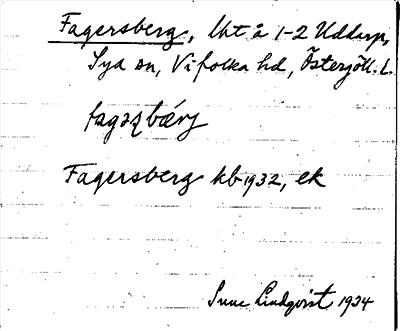 Fagersberg, lht å 1-2 Uddarp,
Sya sn, Vifolka hd, Östergötl. l.
fagəʂbærj
Fagersberg kb 1932, ek
Sune Lindqvist 1934